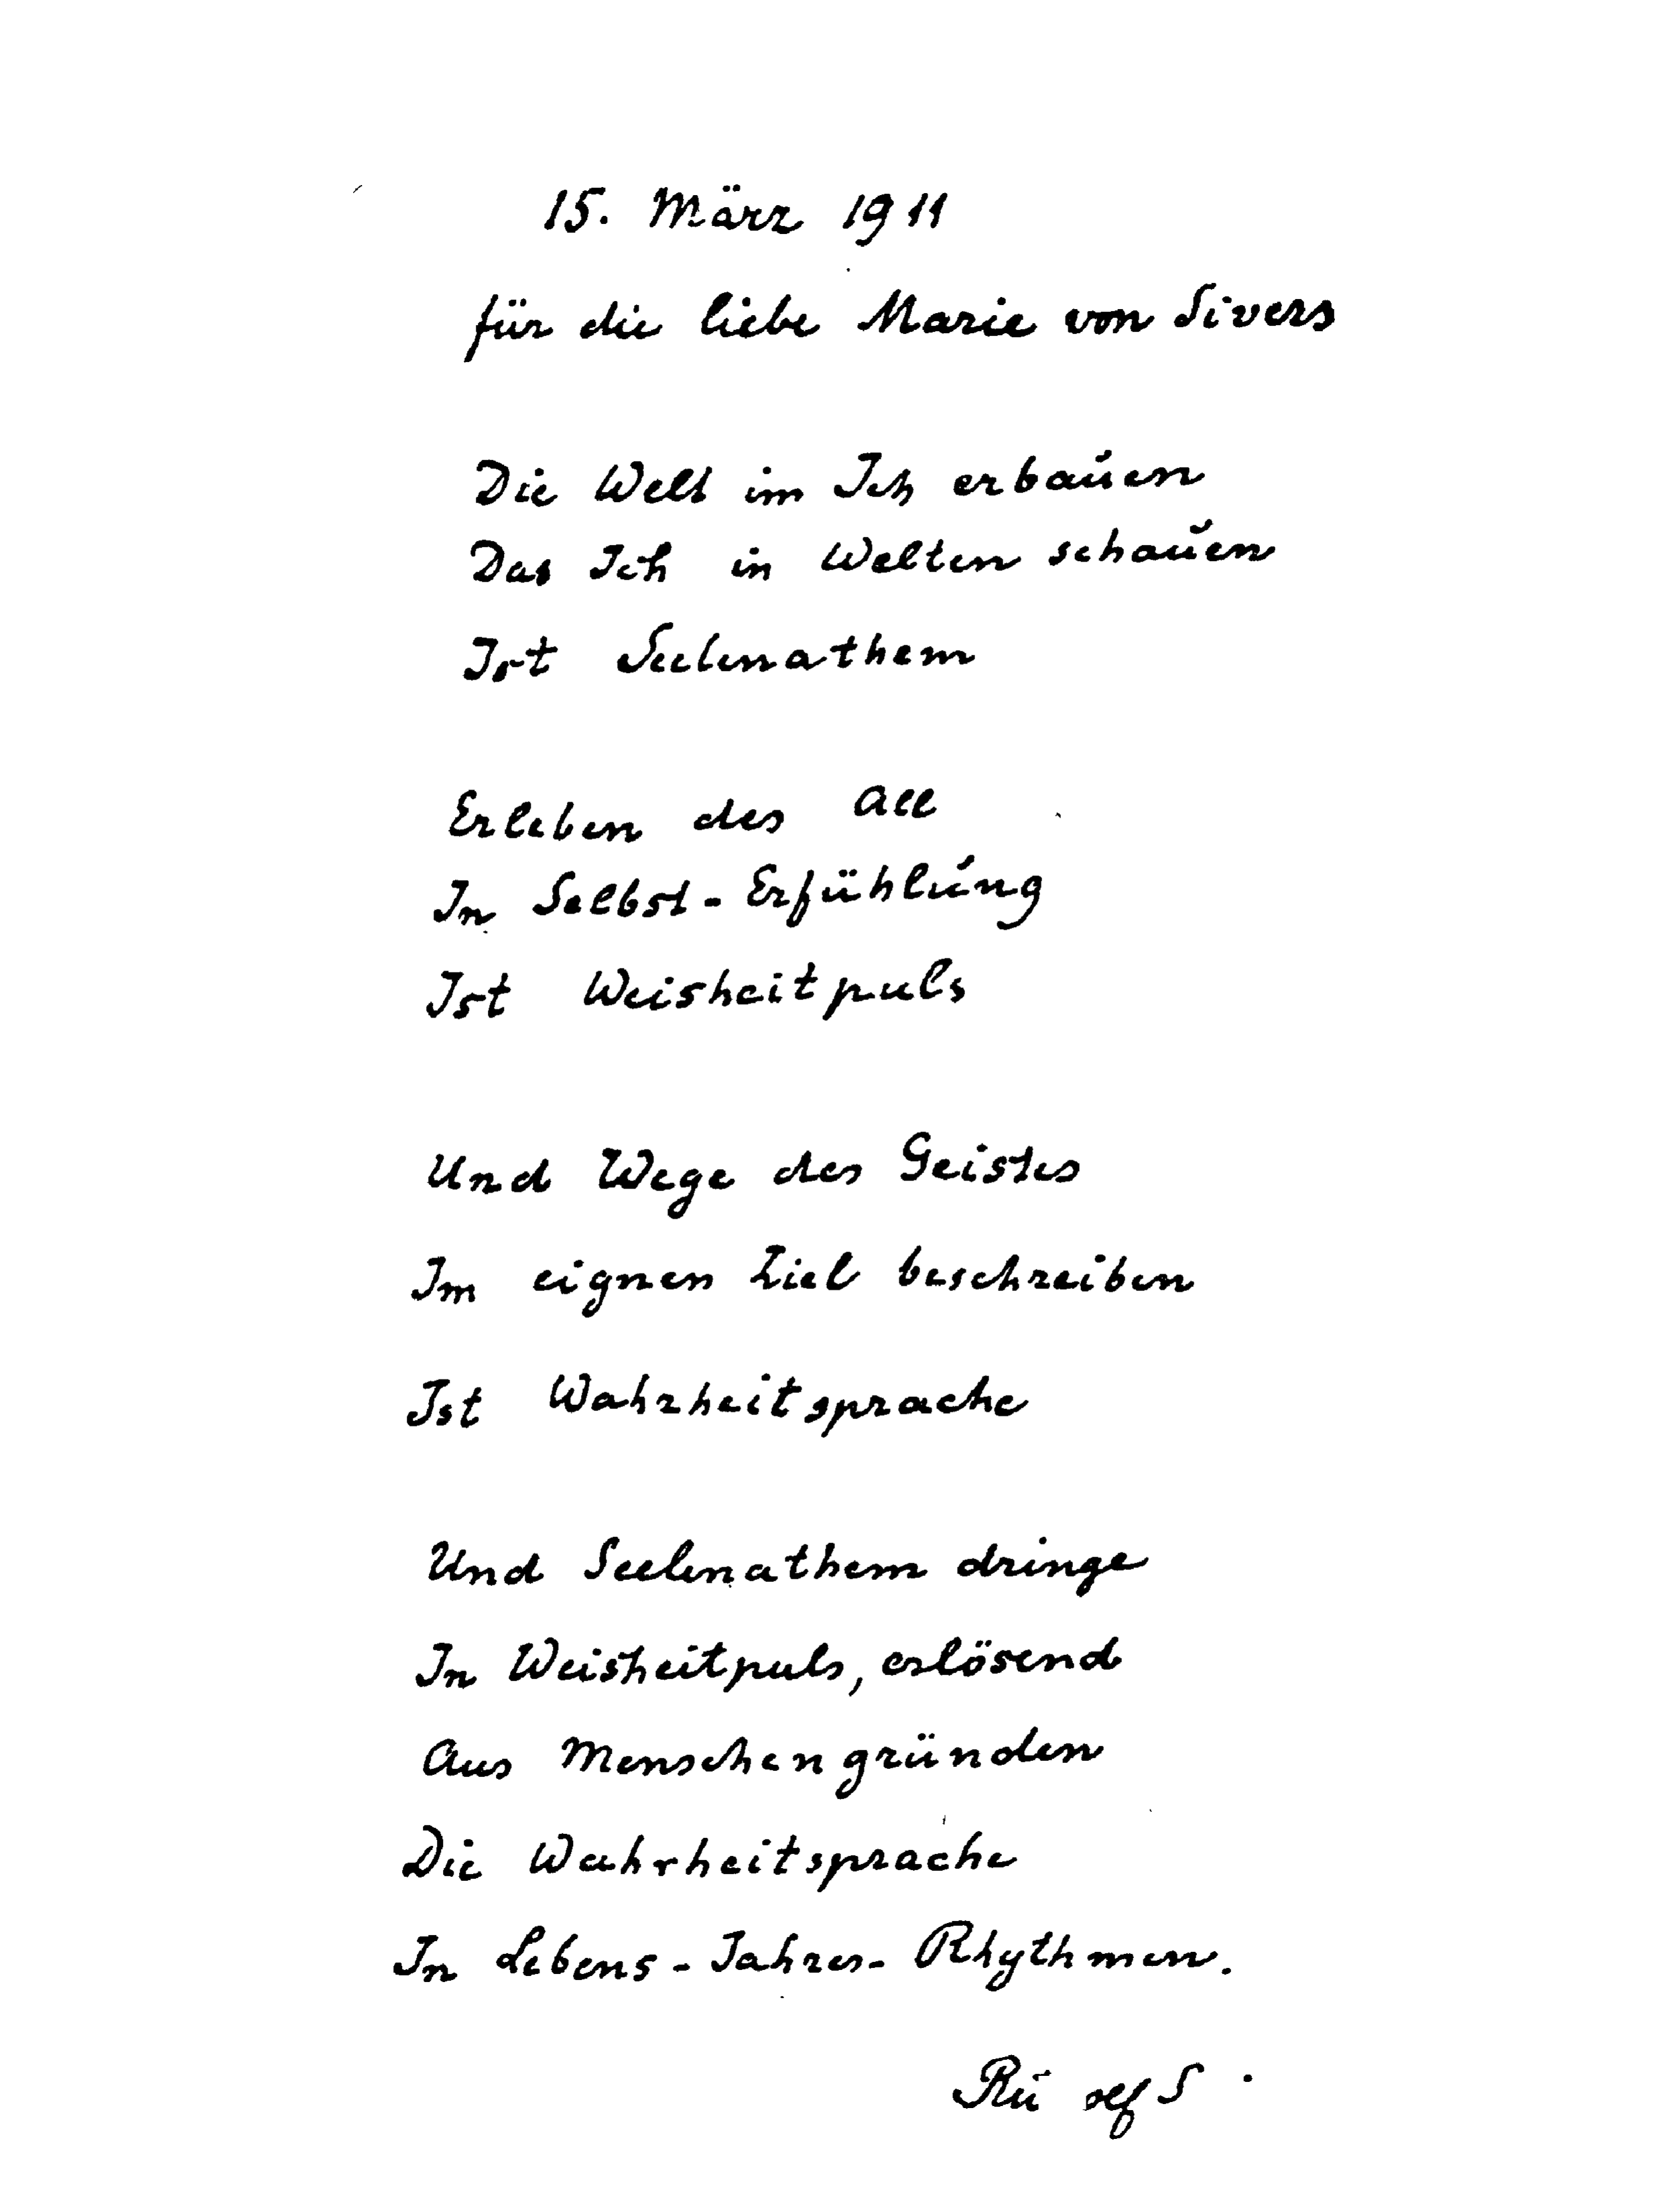 15. März 1911
für die liebe Marie von Sivers
Die Welt im Ich erbauen
Das Ich in Welten schauen
Ist Seelenathem
Erleben des All
In Selbst-Erfühlung
Ist Weisheitpuls
Und Wege des Geistes
Im eignen Ziel beschreiben
Ist Wahrheitsprache
Und Seelenathem dringe
In Weisheitpuls, erlösend
Aus Menschengründen
Die Wahrheitsprache
In Lebens-Jahres-Rhythmen.